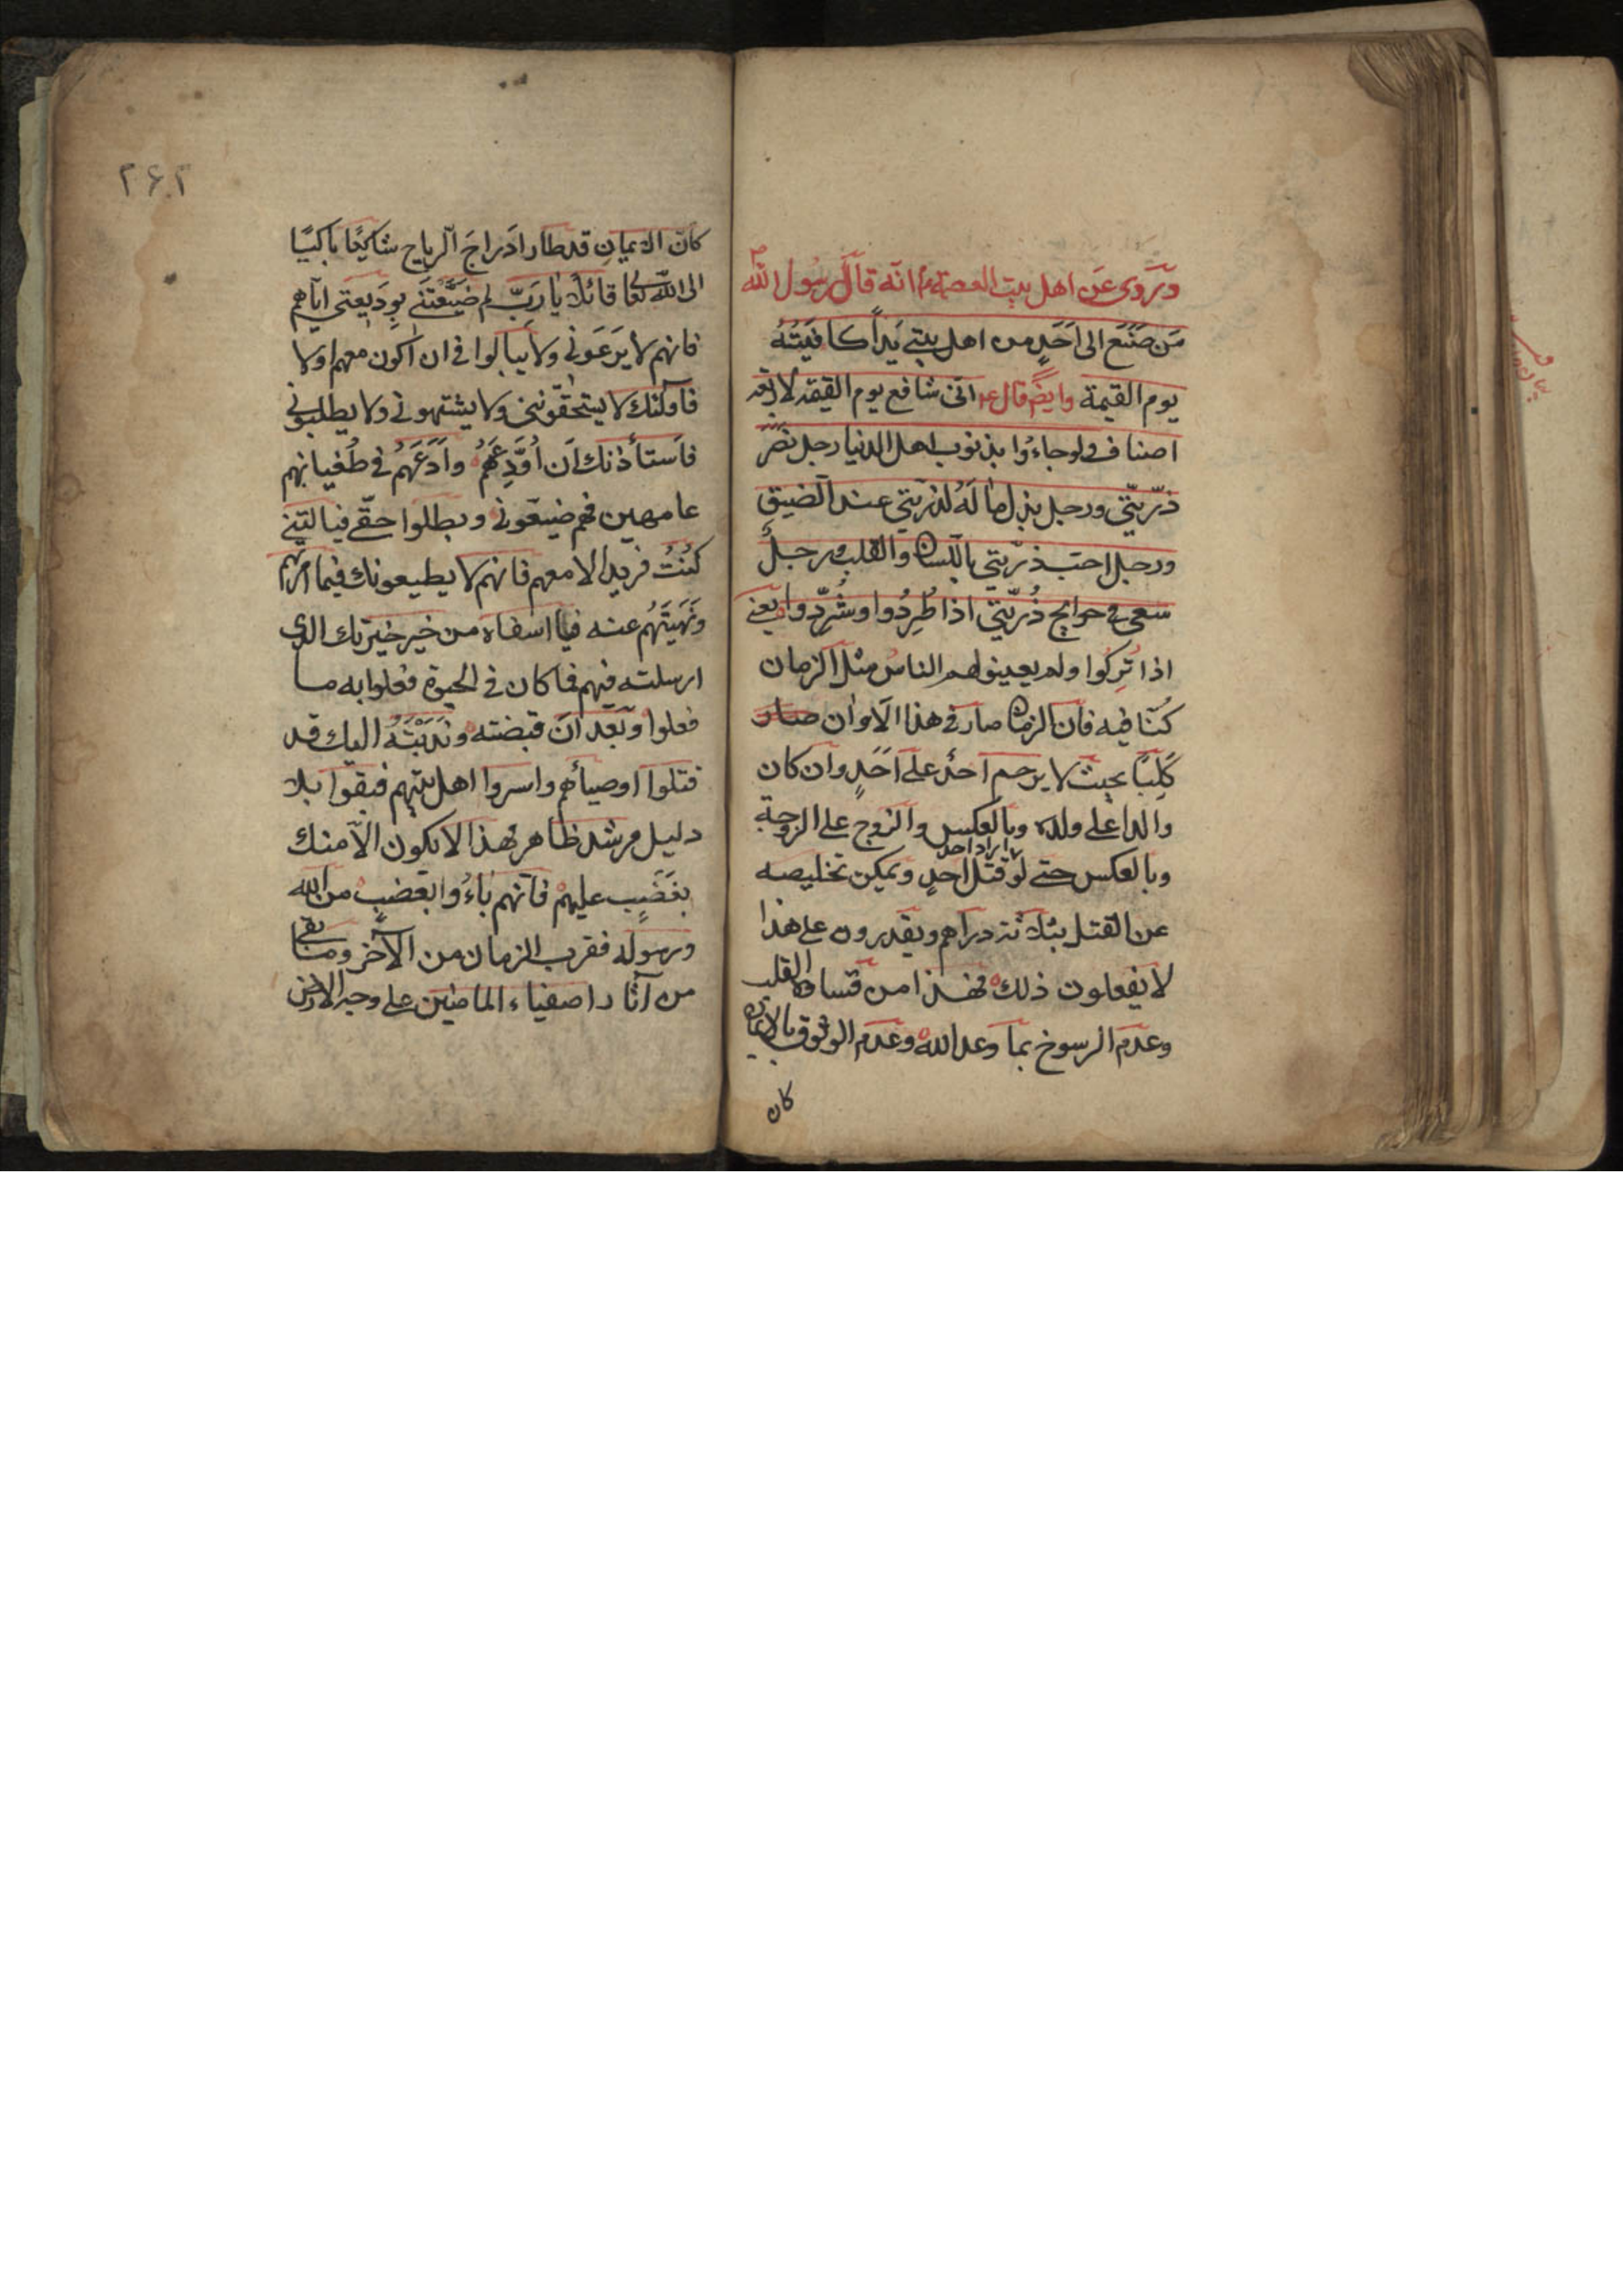 ويروى عن اهل بيت العصمة انه قال رسول الله ص
من صنع الى احد من اهل بيتي يدا كافيته
يوم القيمة وايض قال ع انى شافع يوم القيمة لاربعة
اصناف ولو جاءوا بذنوب اهل الدنيا رجل نصر
ذريتي ورجل بذل ماله لذريتي عند الضيق
ورجل احب ذريتي باللسان والقلب ورجل
سعى في حوايج ذريتي اذا طردوا وشردوا يعنى
اذا تركوا ولم يعينولهم الناس مثل الزمان
كنا فيه فان الزمان صار في هذا الاوان صار
كلبا بحيث لا يرحم احد على احد وان كان
والدا على ولده وبالعكس والزوج على الزوجة
وبالعكس حتى لو اراد احد قتل احد ويمكن تخليصه
عن القتل بثلاثة دراهم ويقدرون على هذا
لا يفعلون ذلك فهذا من قساوة القلب
وعدم الرسوخ بما وعد الله وعدم الوثوق بالايمان
كان
۲۶۲
كان الايمان قد طار ادراج الرياح شاكيا باكيا
الى الله تعا قائلا يا رب لم ضيعتنى بوديعتى اياهم
فانهم لا يرعونى ولا يبالوا في ان اكون معهم اولا
فاولئك لا يستحقوننى ولا يشتهونى ولا يطلبونى
فاستأذنك ان اودعهم وادعهم في طغيانهم
عامهين فهم ضيعونى وبطلوا حقى فياليتنى
كنت فريدا لا معهم فانهم لا يطيعونك فيما امرتهم
ونهيتهم عنه فيا اسفاه من خير خيرتك الذى
ارسلته فيهم فما كان في الحيوة فعلوا به ما
فعلوا وبعد ان قبضته وندبته اليك قد
قتلوا اوصيائهم واسروا اهل بيتهم فبقوا بلا
دليل مرشد ظاهر فهذا لا يكون الا منك
بغضب عليهم فانهم باءوا بغضب من الله
ورسوله فقرب الزمان من الآخر وما بقى
من آثار اصفياء الماضين على وجه الارض